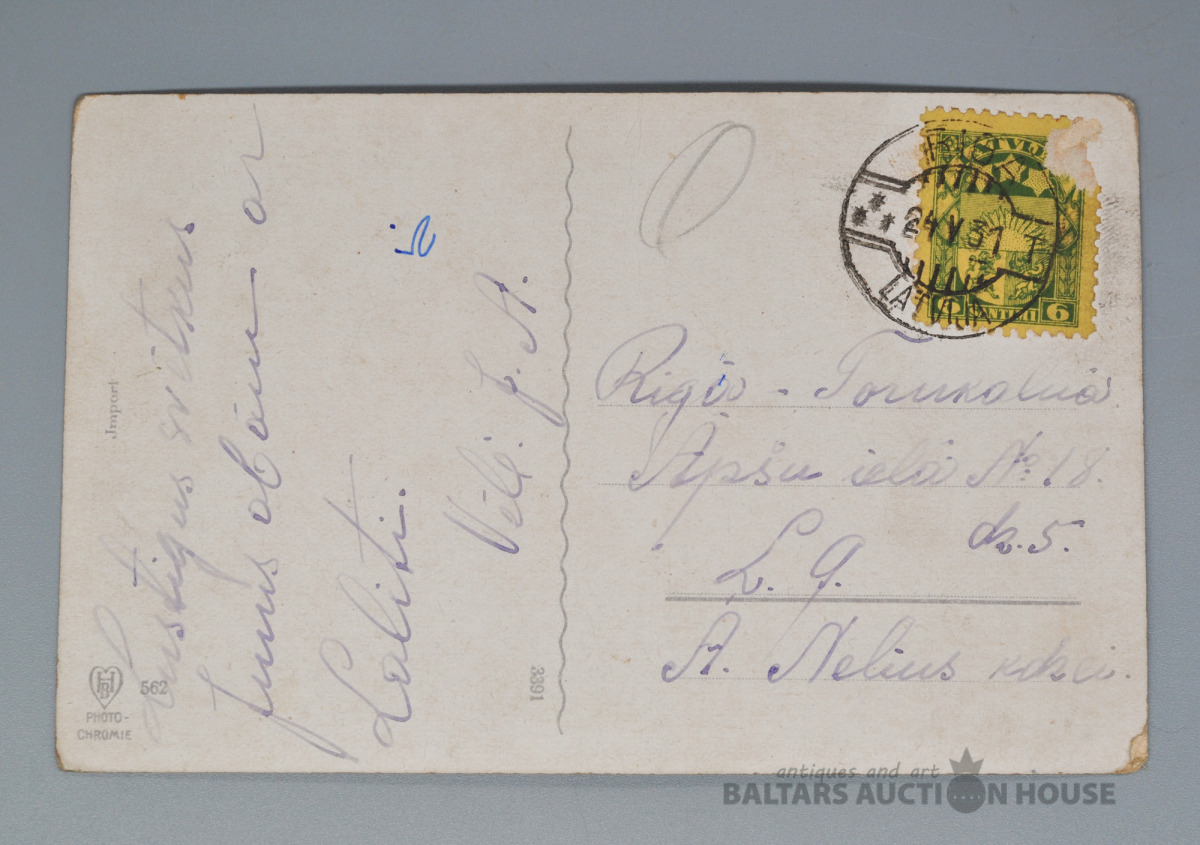 Lustigus svētkus
jums abām ar
Laliti.
Vēl. J. A.
Jmport
562
PHOTO-
CHROMIE
3391
LATVIJA
24 V 31
LATVIJA
6
Rīgā - Torņkalnā
Apšu ielā № 18.
dz. 5.
L. g.
A. Nelius kdzei.
antiques and art
BALTARS AUCTION HOUSE